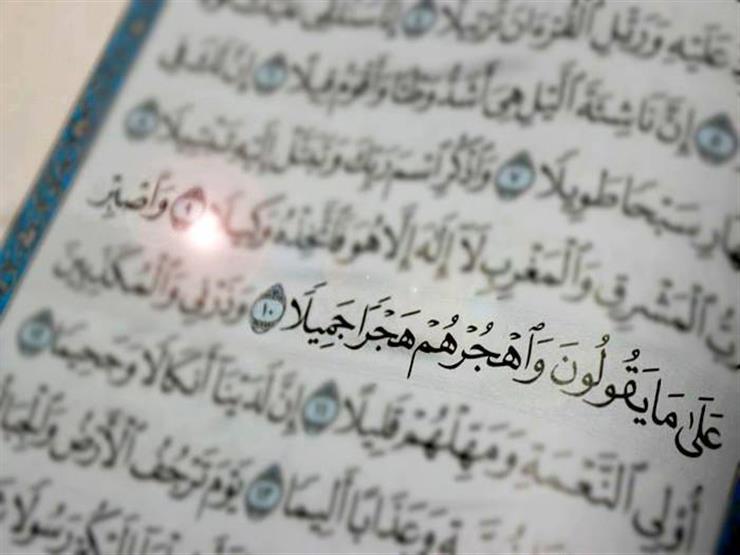 عَلَيْهِ وَرَتِّلِ ٱلْقُرْءَانَ تَرْتِيلًا ٤ إِنَّا سَنُلْقِى عَلَيْكَ
٥ إِنَّ نَاشِئَةَ ٱلَّيْلِ هِىَ أَشَدُّ وَطْـًٔا وَأَقْوَمُ قِيلًا ٦ إِنَّ لَكَ فِى
هَارِ سَبْحًا طَوِيلًا ٧ وَٱذْكُرِ ٱسْمَ رَبِّكَ وَتَبَتَّلْ إِلَيْهِ تَبْتِيلًا ٨
رَبُّ ٱلْمَشْرِقِ وَٱلْمَغْرِبِ لَآ إِلَٰهَ إِلَّا هُوَ فَٱتَّخِذْهُ وَكِيلًا ٩ وَٱصْبِرْ
عَلَىٰ مَا يَقُولُونَ وَٱهْجُرْهُمْ هَجْرًا جَمِيلًا ١٠ وَذَرْنِى وَٱلْمُكَذِّبِينَ
أُو۟لِى ٱلنَّعْمَةِ وَمَهِّلْهُمْ قَلِيلًا ١١ إِنَّ لَدَيْنَآ أَنكَالًا وَجَحِيمًا ١٢
وَعَذَابًا أَلِيمًا ١٣ يَوْمَ تَرْجُفُ ٱلْأَرْضُ وَٱلْجِبَالُ
رَسُولًا